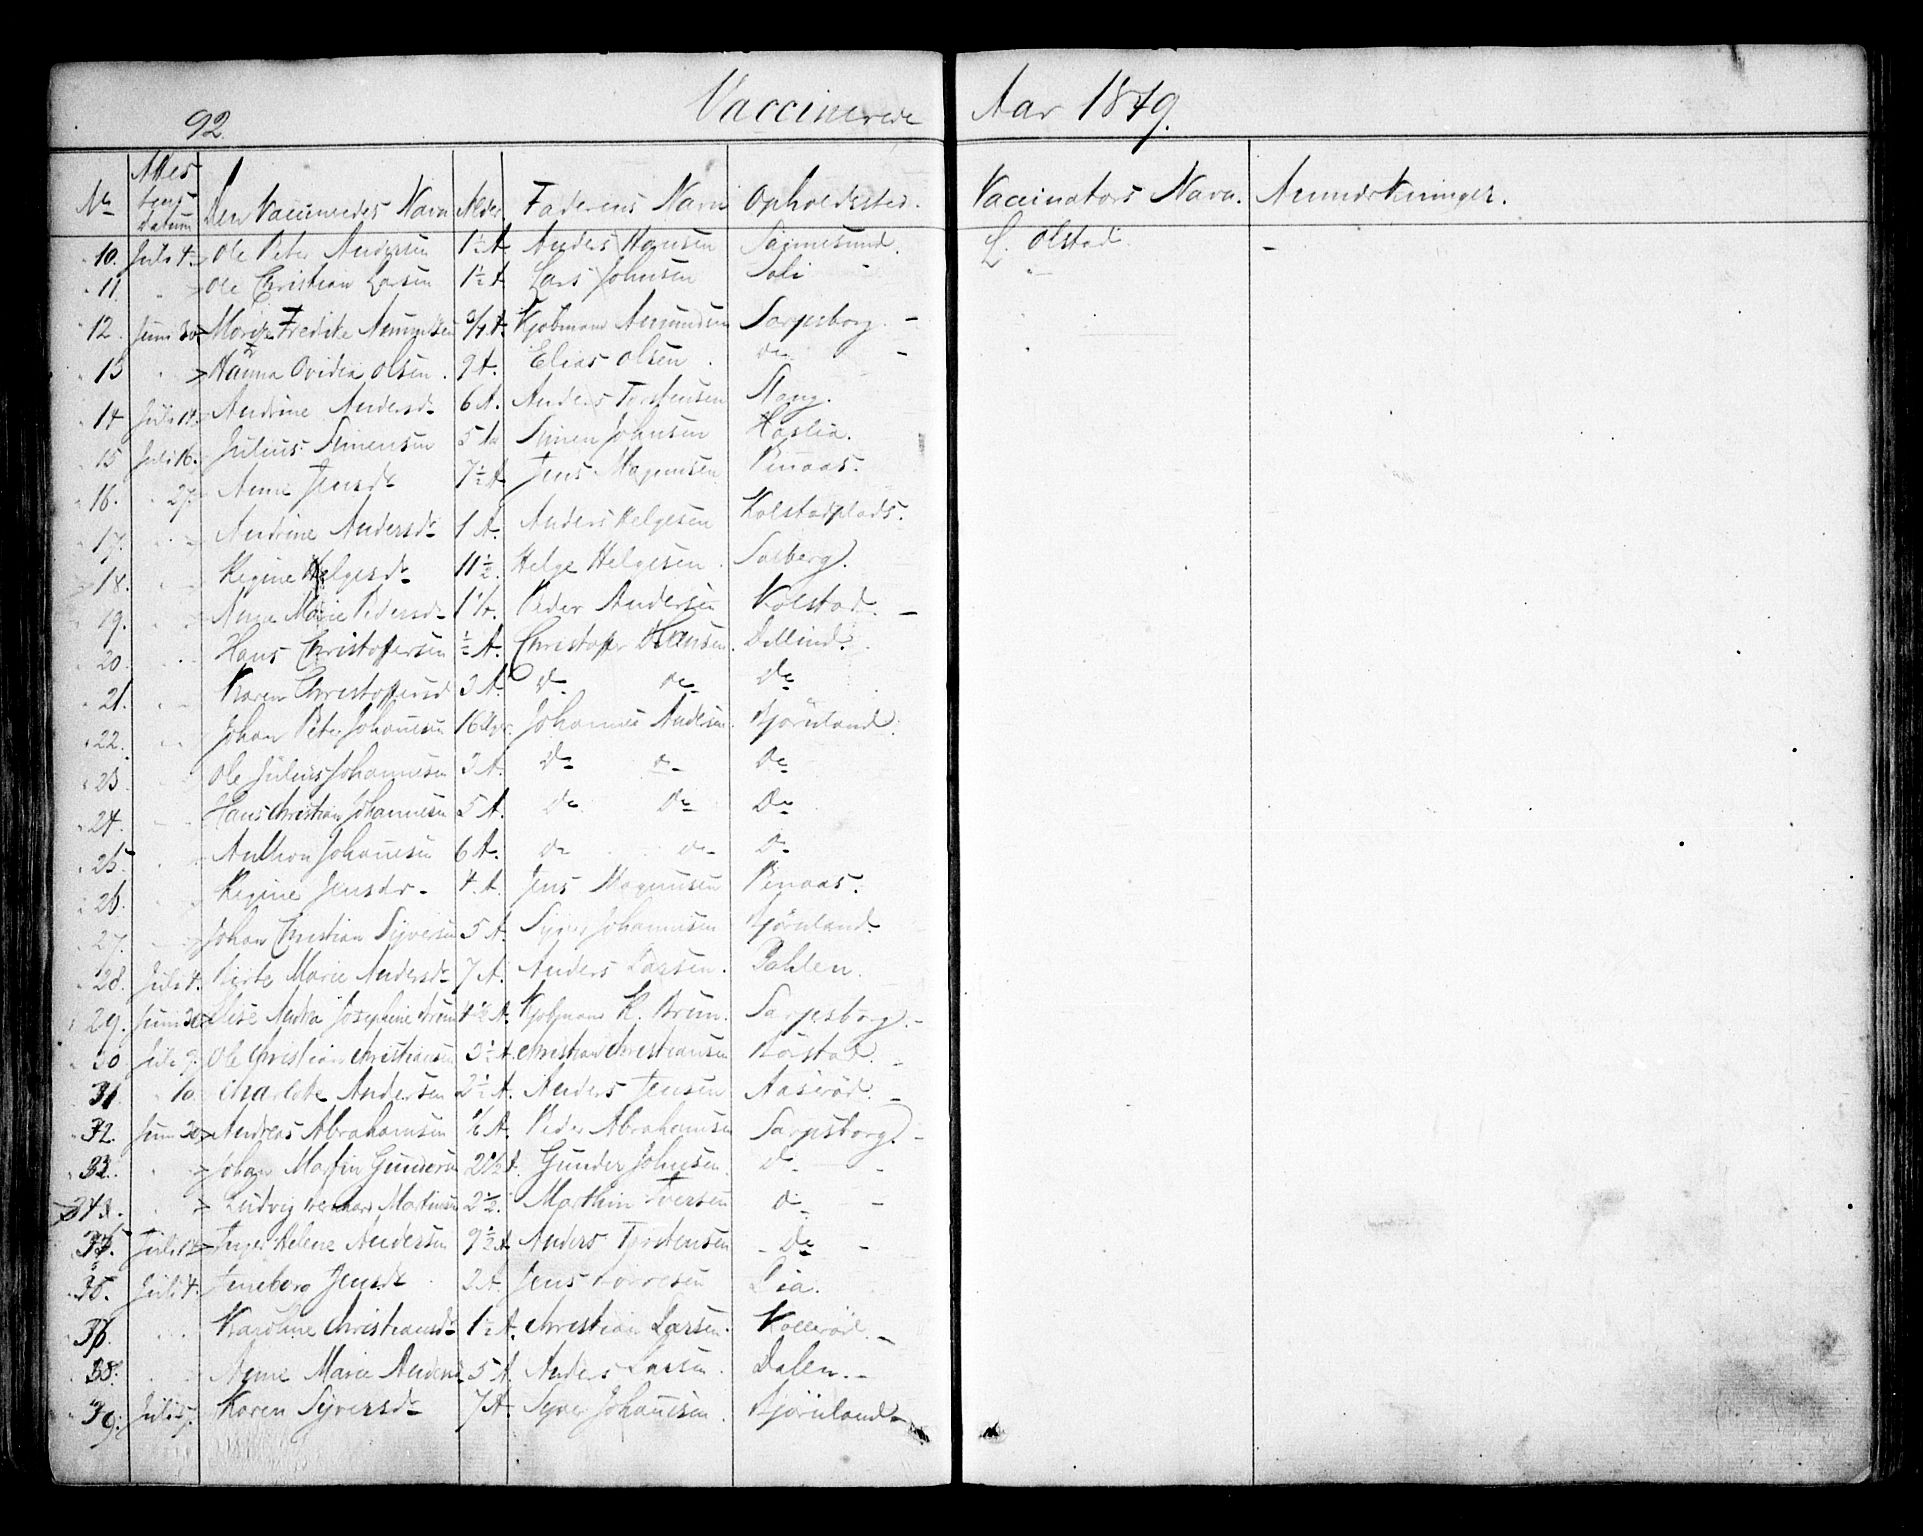 92
Vaccinerede Aar 1849.
No Attestens Datum Den Vaccineredes Navn Alder Faderens Navn Opholdssted. Vaccinators Navn. Anmærkninger.
10. Juli 4. Ole Peter Andersen 1½ A Anders Hansen Sannesund. L. Olstad. -
11. " Ole Christian Larsen 1½ A Lars Johnsen Soli - "
12. Juni 30 Fredike Kjøbmand Amundsen Sarpsborg. -
13 " Hanna Ovidia Olsen. 9 A. Elias Olsen. do -
14 Juli 14. Andrine Andersd. 6 A. Anders Torstensen Stang.
15 Juli 16. Julius Simensen 5 Simen Johnsen Haslia.
16. " 27. Anne Jensd. 7½ A Jens Magnusen Penaas.
17. " Andrine Andersd. 1 A. Anders Helgesen Kolstadplads.
18. Regine Helgesd. 11½. Helge Helgesen. Solberg.
19. " Anne Marie Pedersd. Peder Andersen Kolstad. -
20. " Hans Christofersen ½ A. Christoffer Hansen.
21. " Karen Christoffersd 3 A. do do do
22. " Johan Peter Johanesen 16 Johannes Andersen. Bjørnland.
23 " Ole Julius Johannesen 3 A. do do do
24. " Hans Christian Johannesen 5 A. do do do
25. " Anthon Johanesen 6 A. do do do
26. " Regine Jensdr. 4 A. Jens Magnusen Penaas.
27. " Johan Christian Syversen 5 A. Syver Johannesen Bjørnland.
28. Juli 4. Berte Marie Andersd. 7 A. Anders Larsen. Dahlen.
29. Juni 30 Lise Andrea Josephine Brun 4½ A. Kjøbmand K. Brun. Sarpsborg. -
30 Juli 9. Ole Christian Christiansen 3½ A. Christian Christiansen -
31. " 10. Charlotte Andersen 2½ A. Anders Jensen Aaserød. -
32. Juni 30 Andreas Abrahamsen Peder Abrahamsen Sarpsborg. -
33. " Johan Martin Gundersen Gunder Johnsen. do -
34. " Ludvig Martinsen 2½. Marthin Iversen do -
Juli 14 Inger Helene Andersen 9½ A Anders Torstensen - do -
35. Juli 4. Jensd. 2 A. Jens Lia.
36. " Karoline Christiansd. 1½ A. Christian Larsen. Kollerød. -
38. " Anne Marie Andersd 5 A. Anders Larsen. Dalen. -
39. Juli 5. Karen Syversd. 7 A. Syver Johanesen. Bjørnland -